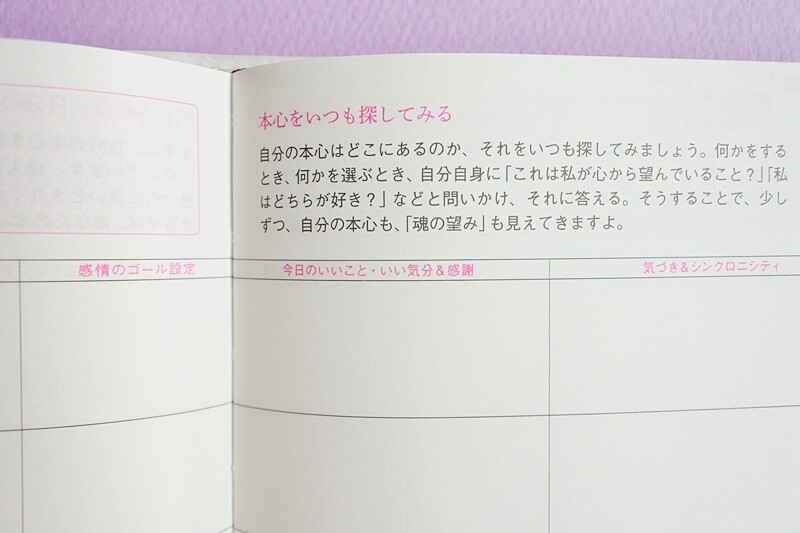 本心をいつも探してみる
自分の本心はどこにあるのか、それをいつも探してみましょう。何かをする
とき、何かを選ぶとき、自分自身に「これは私が心から望んでいること？」「私
はどちらが好き？」などと問いかけ、それに答える。そうすることで、少し
ずつ、自分の本心も、「魂の望み」も見えてきますよ。
感情のゴール設定
今日のいいこと・いい気分＆感謝
気づき＆シンクロニシティ